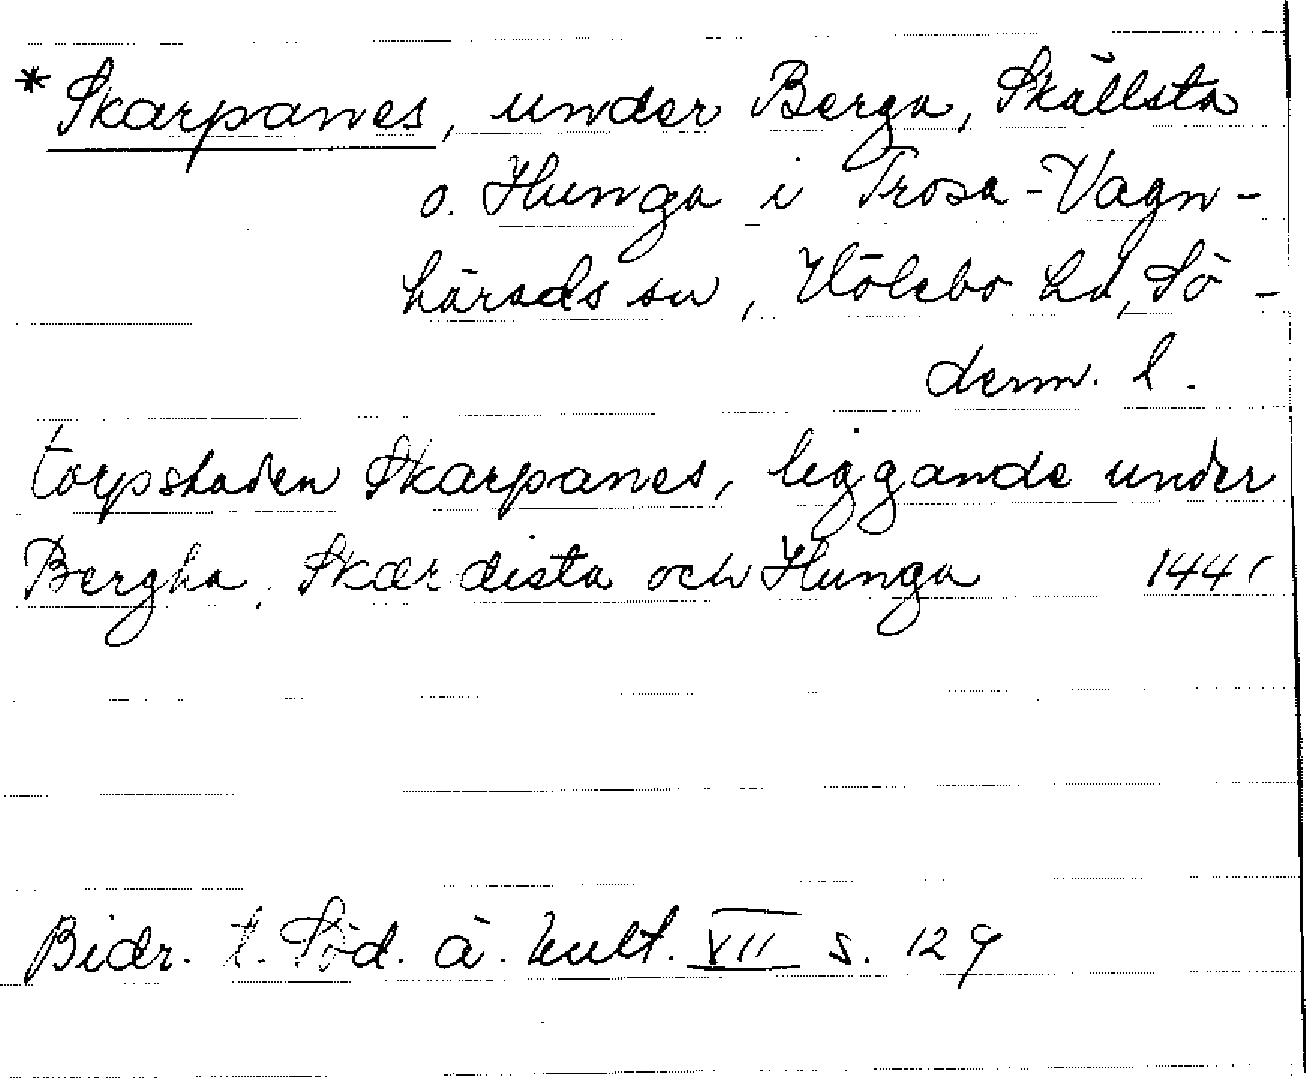 * Skarpanes, under Berga, Skällsta
o. Hunga i Trosa-Vagn-
härads sn, Hölebo hd, Sö-
derm. l.
torpstaden Skarpanes, liggande under
Bergha, Skærdista och Hunga
Bidr. t. Söd. ä. kult. VII s. 129